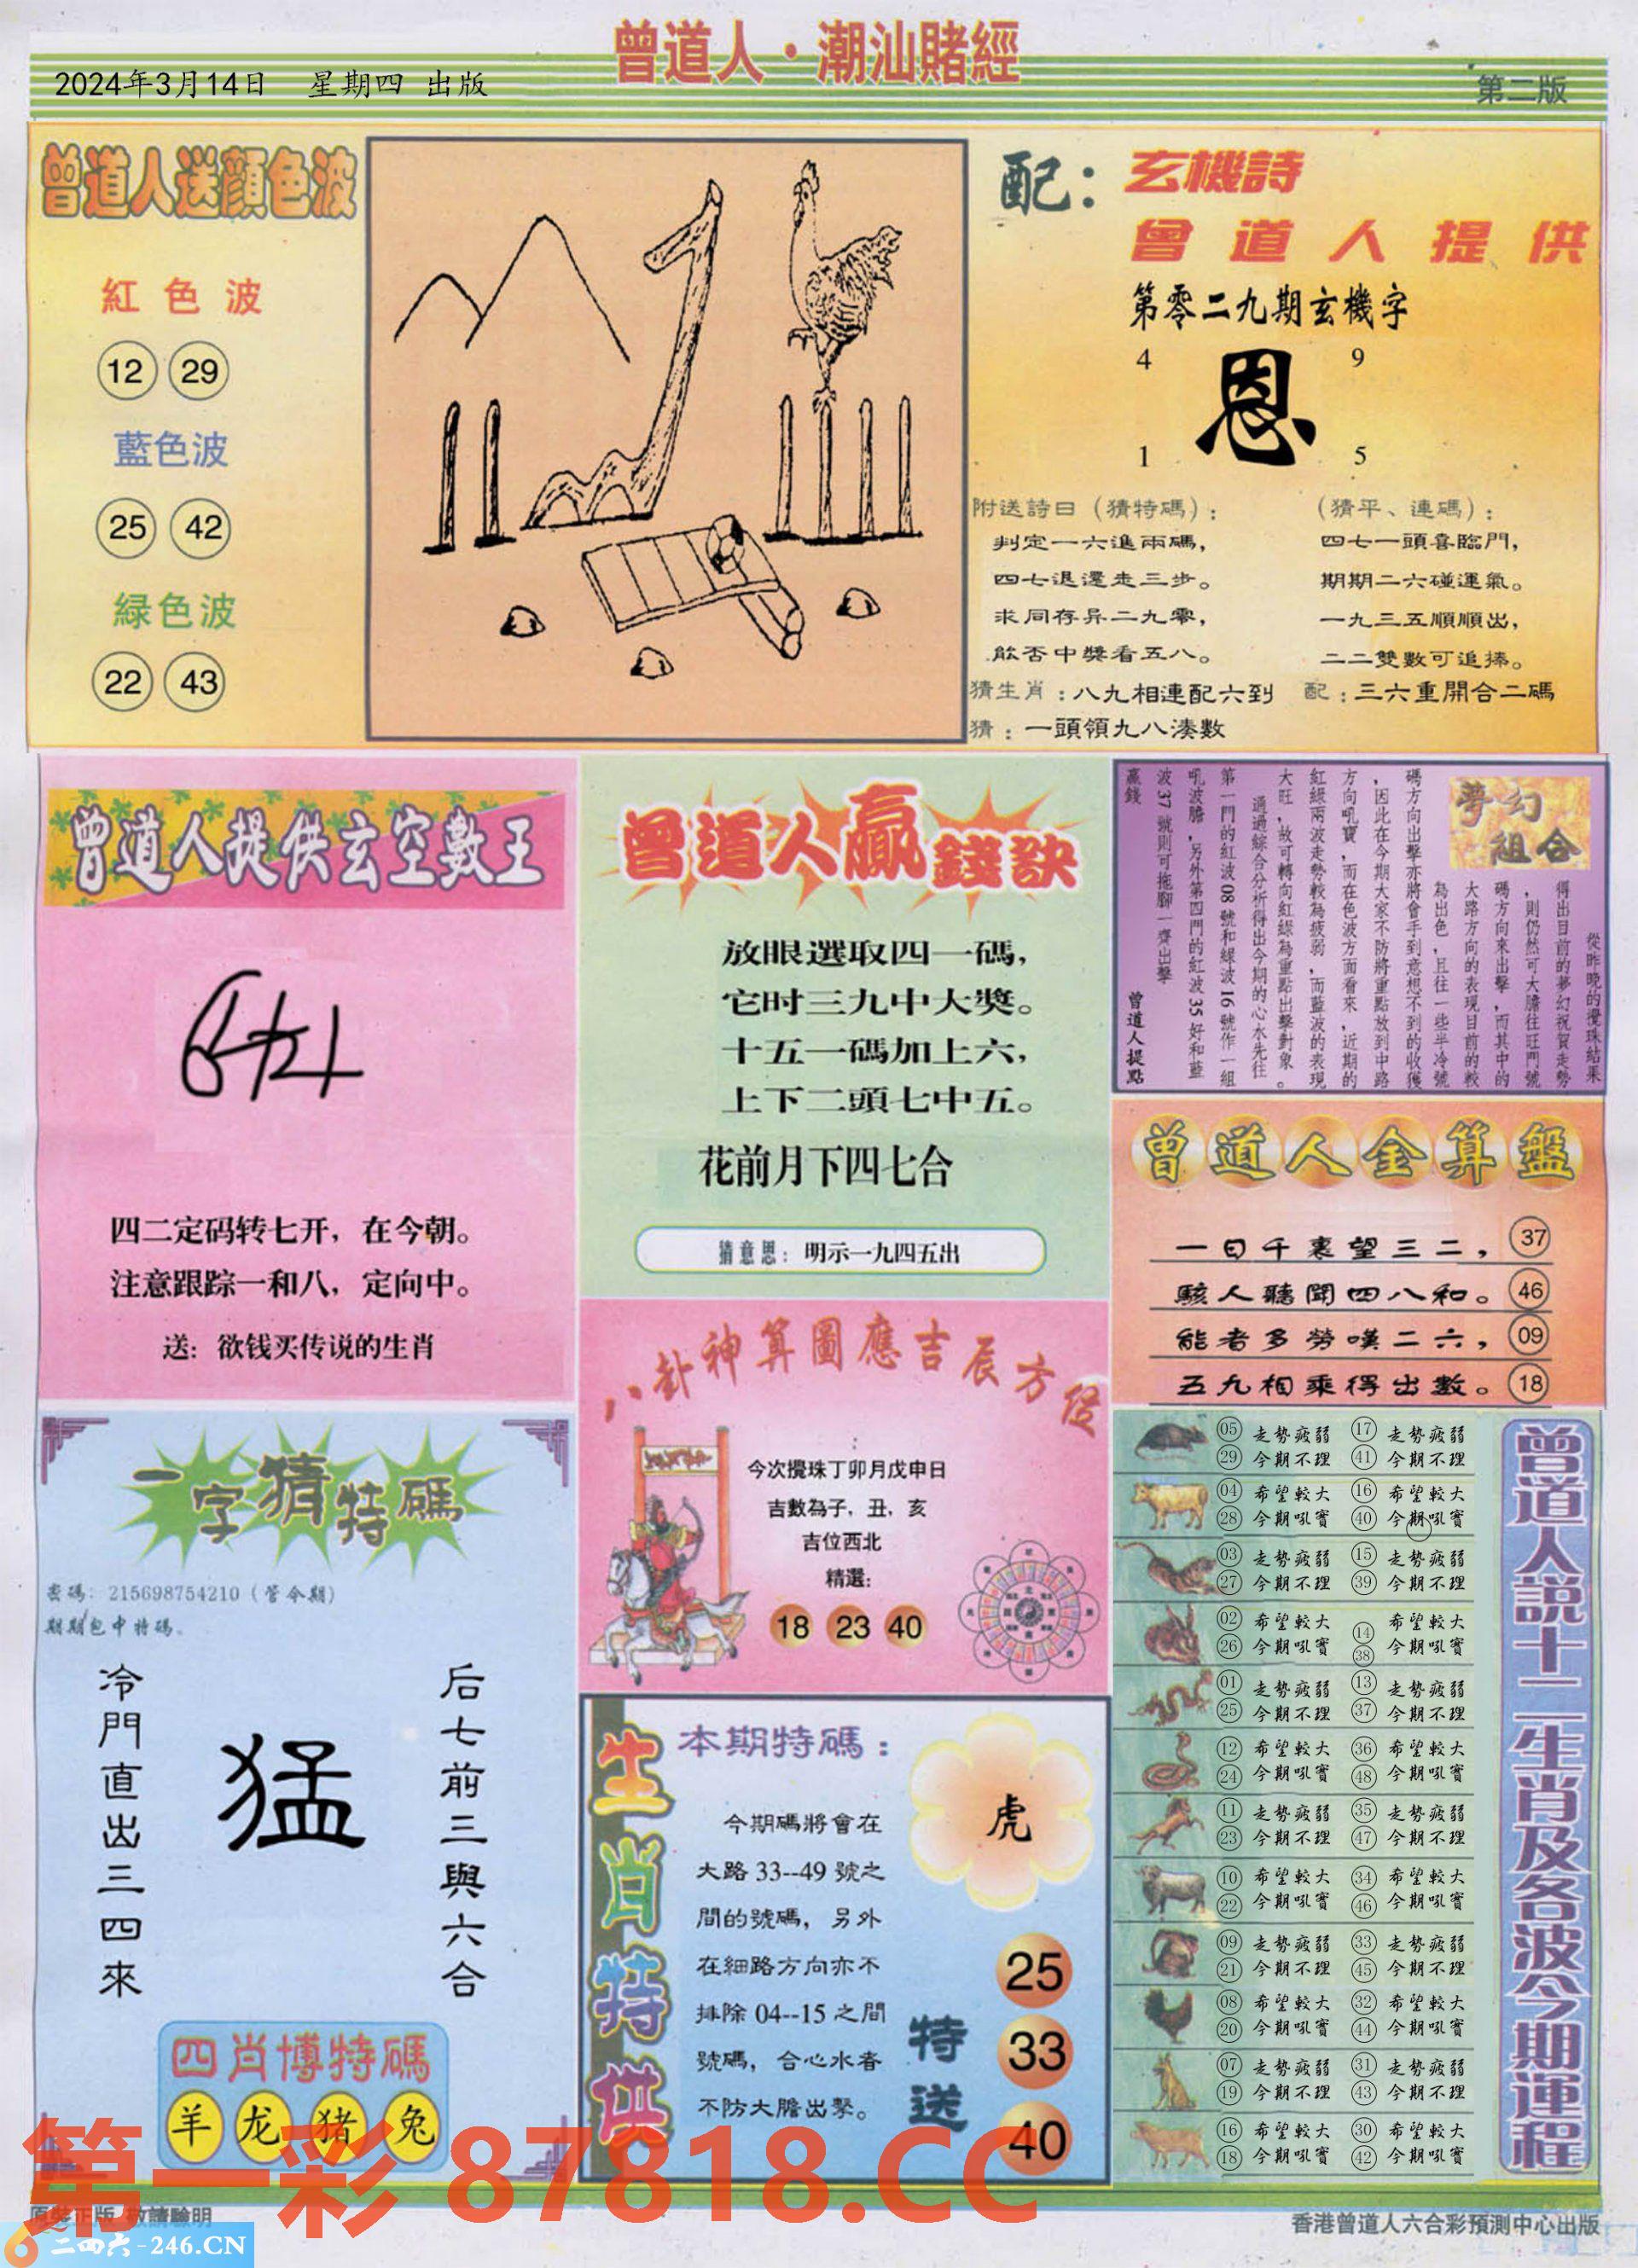 曾道人·潮汕賭經
2024年3月14日 星期四 出版
第二版
曾道人送顔色波
紅色波
12 29
藍色波
25 42
緑色波
22 43
配：玄機詩
曾道人提供
第零二九期玄機字
4 9
恩
1 5
附送詩曰（猜特碼）：
判定一六進兩碼，
四七退還走三步。
求同存异二九零，
能否中獎看五八。
（猜平、連碼）：
四七一頭喜臨門，
期期二六碰運氣。
一九三五順順出，
二二雙數可追捧。
猜生肖：八九相連配六到
配：三六重開合二碼
猜：一頭領九八湊數
曾道人提供玄空數王
四二定码转七开，在今朝。
注意跟踪一和八，定向中。
送：欲钱买传说的生肖
曾道人贏錢訣
放眼選取四一碼，
它时三九中大獎。
十五一碼加上六，
上下二頭七中五。
花前月下四七合
猜意思：明示一九四五出
夢幻
組合
從昨晚的攪珠結果
得出目前的夢幻祝賀走勢
，則仍然可大膽往旺門號
碼方向來出擊，而其中的
大路方向的表現目前的較
為出色，且往一些半冷號
碼方向出擊亦將會手到意想不到的收獲
，因此在今期大家不防將重點放到中路
方向吼寶，而在色波方面看來，近期的
紅綠兩波走勢較為疲弱，而藍波的表現
大旺，故可轉向紅綠為重點出擊對象。
通過綜合分析得出今期的心水先往
第一門的紅波08號和綠波16號作一組
吼波膽，另外第四門的紅波35好和藍
波37號則可拖腳一齊出擊
贏錢
曾道人提點
曾道人金算盤
一日千裏望三二，37
駭人聽聞四八和。46
能者多勞嘆二六，09
五九相乘得出數。18
八卦神算圖應吉辰方位
今次攪珠丁卯月戊申日
吉數為子，丑，亥
吉位西北
精選：
18 23 40
一字猜特碼
密碼：215698754210（管今期）
期期包中特碼。
冷門直出三四來
猛
后七前三與六合
四肖博特碼
羊 龙 猪 兔
生肖特供
本期特碼：
虎
今期碼將會在
大路33--49號之
間的號碼，另外
在細路方向亦不
排除04--15之間
號碼，合心水者
不防大膽出擊。
特送
25
33
40
曾道人說十二生肖及各波今期運程
05 走勢疲弱 17 走勢疲弱
29 今期不理 41 今期不理
04 希望較大 16 希望較大
28 今期吼實 40 今期吼實
03 走勢疲弱 15 走勢疲弱
27 今期不理 39 今期不理
02 希望較大 14 希望較大
26 今期吼實 38 今期吼實
01 走勢疲弱 13 走勢疲弱
25 今期不理 37 今期不理
12 希望較大 36 希望較大
24 今期吼實 48 今期吼實
11 走勢疲弱 35 走勢疲弱
23 今期不理 47 今期不理
10 希望較大 34 希望較大
22 今期吼實 46 今期吼實
09 走勢疲弱 33 走勢疲弱
21 今期不理 45 今期不理
08 希望較大 32 希望較大
20 今期吼實 44 今期吼實
07 走勢疲弱 31 走勢疲弱
19 今期不理 43 今期不理
16 希望較大 30 希望較大
18 今期吼實 42 今期吼實
第一彩 87818.CC
原裝正版 敬請驗明
二四六-246.CN
香港曾道人六合彩預測中心出版